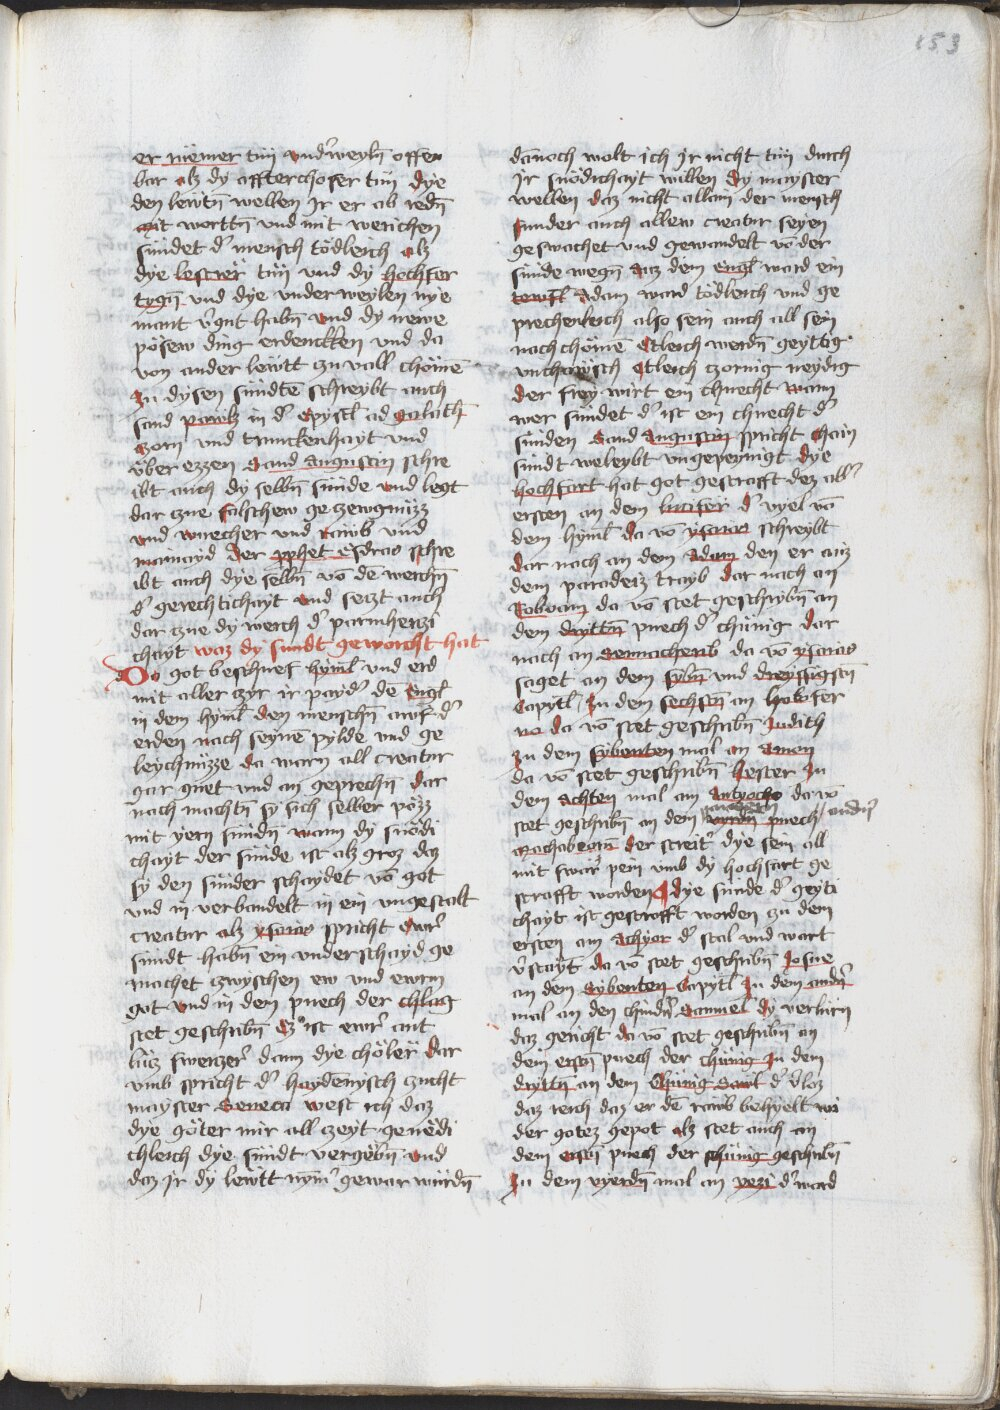 153
er niemer tuͤn vnd̕weyln̄ offen
bar alz dy affterchoser tuͤn dye
den lewtn̄ wellen Jr er ab redn̄
mit worttn̄ vnd mit werichen
suͤndet d̕ mensch toͤdleich alz
dye lestrer tuͤn vnd dy hochfer
tygn̄ vnd dye vnderweylen nye
mant v̕guͤt habn̄ vnd dy newe
poͤsew ding erdenckken vnd da
von ander lewtt czu vall choͤmē
Zu dysen suͤndtē schreybt auch
sand pawls in d̕ epystl ad galath̄
zorn vnd trunckenhayt vnd
vͤber ezzen Sand augustin schre
ibt auch dy selbn̄ suͤnde vnd legt
dar czue falschew gezewgnuͤzz
vnd wuecher vnd rawb vnd
mainayd Der pphet Esdras schre
ibt auch dye selbn̄ vō dē werchn̄
d̕ gerechtichayt vnd seczt auch
dar czue dy werch d̕ parmherczi
chayt waz dy sundt geworcht hat
Do got beschuef hyml̄ vnd erd
mit aller czyr ir payd̕ dē Engl̄
in dem hyml̄ den menschn̄ awf d̕
erden nach seynē pylde vnd ge
leychnuͤzze da warn all creatur
gar guet vnd an geprechn̄ dar
nach machtn̄ sy sich selber poͤzz
mit yern sundn̄ wann dy snoͤdi
chayt der suͤnde ist alz groz daz
sy den suͤnder schaydet vō got
vnd in verbandelt in ein vngestalt
creatur alz ysaias spricht Ewr̕
suͤndt habn̄ ein vnderschayd ge
machet czwyschen ew vnd ewrm
got vnd in dem puech der chlag
stet geschribn̄ Ez ist ewr̕ ant
luͤz swerczer̕ dann dye choͤler dar
vmb spricht d̕ haydenysch czucht
mayster Seneca west ich daz
dye goͤter mir all czeyt genedi
chleich dye suͤndt vergebn̄ vnd
daz jr dy lewtt nym̄̕ gewar wurdn̄
dānoch wolt ich jr nicht tuͤn durch
jr snoͤdichayt willen dy mayster
wellen daz nicht allain der mensch
sunder auch allew creatur seyen
geswachet vnd gewandelt vō der
suͤnde wegn̄ Auz dem Engl̄ ward ein
tewfl̄ Adam ward toͤdleich vnd ge
prechenleich also sein auch all sein
nachchoͤmē Etleich werdn̄ geyttig
vnchawsch Etleich czornig neydig
der frey wirt ein chnecht wann
wer suͤndet d̕ ist ein chnecht d̕
suͤnden Sand Augustin spricht chain
suͤndt weleybt vngepeynigt dye
hochfart hat got gestrafft dez all̕
ersten an dem lucifer d̕ vyel vō
dem hyml̄ da vō ysaias schreybt
dar nach an dem Adam den er auz
dem paradeiz trayb dar nach an
Roboam da vō stet geschribn̄ an
dem dryttn̄ puech d̕ chuͤnig dar
nach an Sennacherib da vō ysaias
saget an dem sybn̄ vnd dreyssigstn̄
Capytl̄ Zu dem sechstn̄ an holofer
no da vō stet geschribn̄ Judith
Zu dem sybenten mal an Amon
da vō stet geschribn̄ hester Zu
dem achten mal am Antyocho da vō
stet geschribn̄ an dem vyrdn̄ puech
Machabeorum der streit̕ dye sein all
mit swar̕ pein vmb dy hochfart ge
strafft worden dye suͤnde d̕ geyti
chayt ist gestrafft worden zu dem
ersten am Achyor d̕ stal vnd wart
v̕staynt da vō stet geschribn̄ Josue
an dem Sybenten Capytl̄ Zu dem and̕n̄
mal an den chind̕n̄ Samuel dy verlurn
daz gericht da vō stet geschribn̄ an
dem erstn̄ puech der chuͤnig Zu dem
dryttn̄ an dem Chuͤnig Sawl d̕ v̕loz
daz reich daz er dē rawb behyelt wi
der gotez gepot alz stet auch an
dem erstn̄ puech der chuͤnig geschribn̄
Zu dem vyerdn̄ mal an yezi d̕ ward